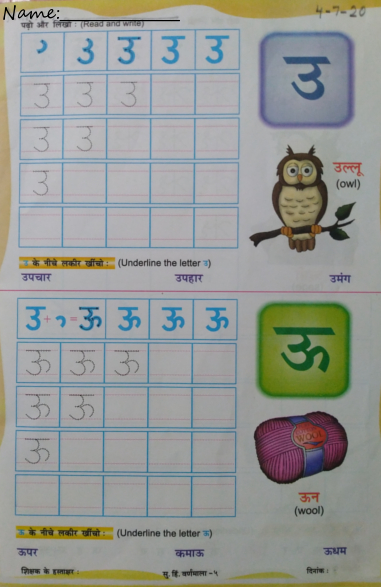 Name: 4-7-20
पढ़ो और लिखो : (Read and write)
उ उ उ उ
उ उ उ
उ उ
उ
उ
उल्लू
(owl)
उ के नीचे लकीर खींचो : (Underline the letter उ)
उपचार उपहार उमंग
उ + = ऊ ऊ ऊ ऊ
ऊ ऊ ऊ
ऊ ऊ
ऊ
ऊ
WOOL
ऊन
(wool)
ऊ के नीचे लकीर खींचो : (Underline the letter ऊ)
ऊपर कमाऊ ऊधम
शिक्षक के हस्ताक्षर : सु. हिं. वर्णमाला - ५ दिनांक :